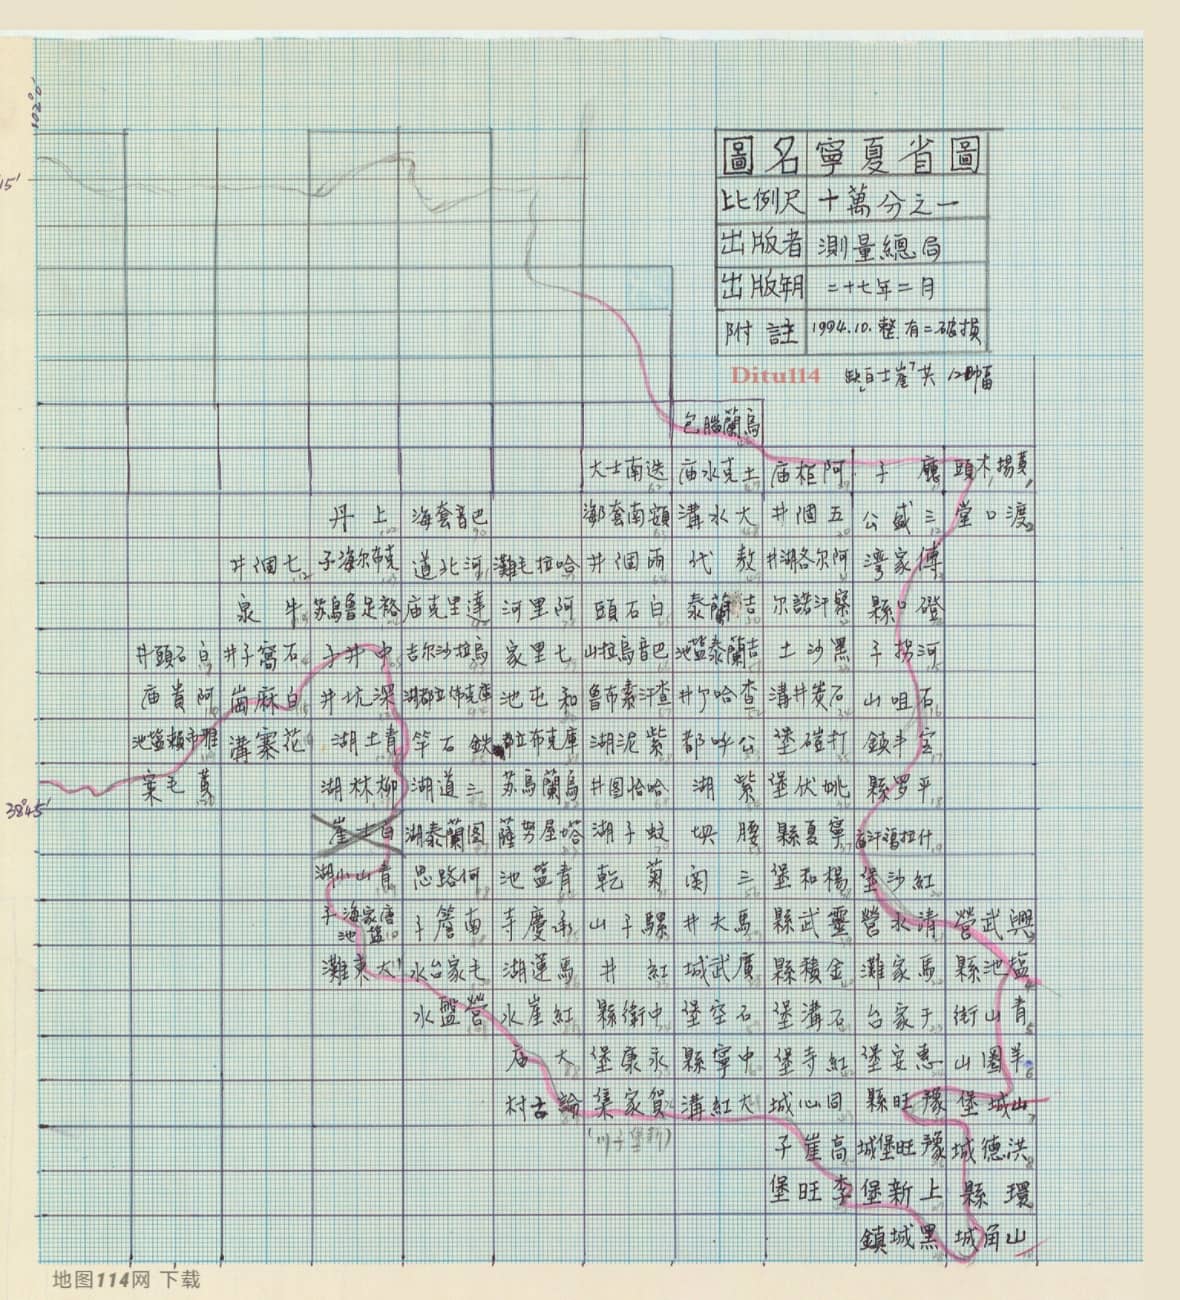 102°0'
15'
圖名 寧夏省圖
比例尺 十萬分之一
出版者 測量總局
出版年月 二十七年二月
附註 1994.10.整.有=破損
Ditu114
缺白土崖 共 幅
烏蘭腦包
頭 廳子 阿柜庙 土克水庙 迭南士大
渡口堂 三盛公 五個井 大水溝 額南套鄒 巴音套海 上丹
傅家灣 阿尔洛湖井 敖代 兩個井 哈拉毛灘 河北道 克布尔海子 七個井
磴口縣 察汗諾尔 吉蘭泰 白石頭 阿里河 達里克庙 牛泉
河拐子 黑沙土 吉蘭泰鹽池 巴音烏拉山 七里家 烏拉沙尔吉 中井子 石窩子井 白石頭井
石咀山 石炭井溝 查哈尔井 查汗素布魯 和屯池 深坑井 白麻崗 阿貴庙
宝丰鎮 打磑堡 公呼都 紫泥湖 庫克布拉都 鉄石竿 青土湖 花寨溝 雅布賴鹽池
平罗縣 姚伏堡 紫湖 哈恰图井 烏蘭烏苏 三道湖 柳林湖 黃毛寨
38°45'
什拉福汗庙 寧夏縣 腰坝 蚊子湖 塔屋努薩 图蘭泰湖 白土崖
紅沙堡 楊和堡 三関 菊乾 青鹽池 何路思 青山小湖
興武營 清水營 靈武縣 馬夫井 騾子山 承慶寺 南營子 唐家海子 鹽池
塩池縣 馬家灘 金積縣 廣武城 紅井 馬蓮湖 七家台水 大東灘
青山街 于家台 石溝堡 石空堡 中衛縣 紅崖水 營盤水
羊圈山 惠安堡 紅寺堡 中寧縣 永康堡 大庙
山城堡 豫旺縣 同心城 大紅溝 賀家集 論古村
(新堡子川)
洪德城 豫旺堡城 高崖子
環縣 上新堡 李旺堡
山角城 黑城鎮
地图114网 下载